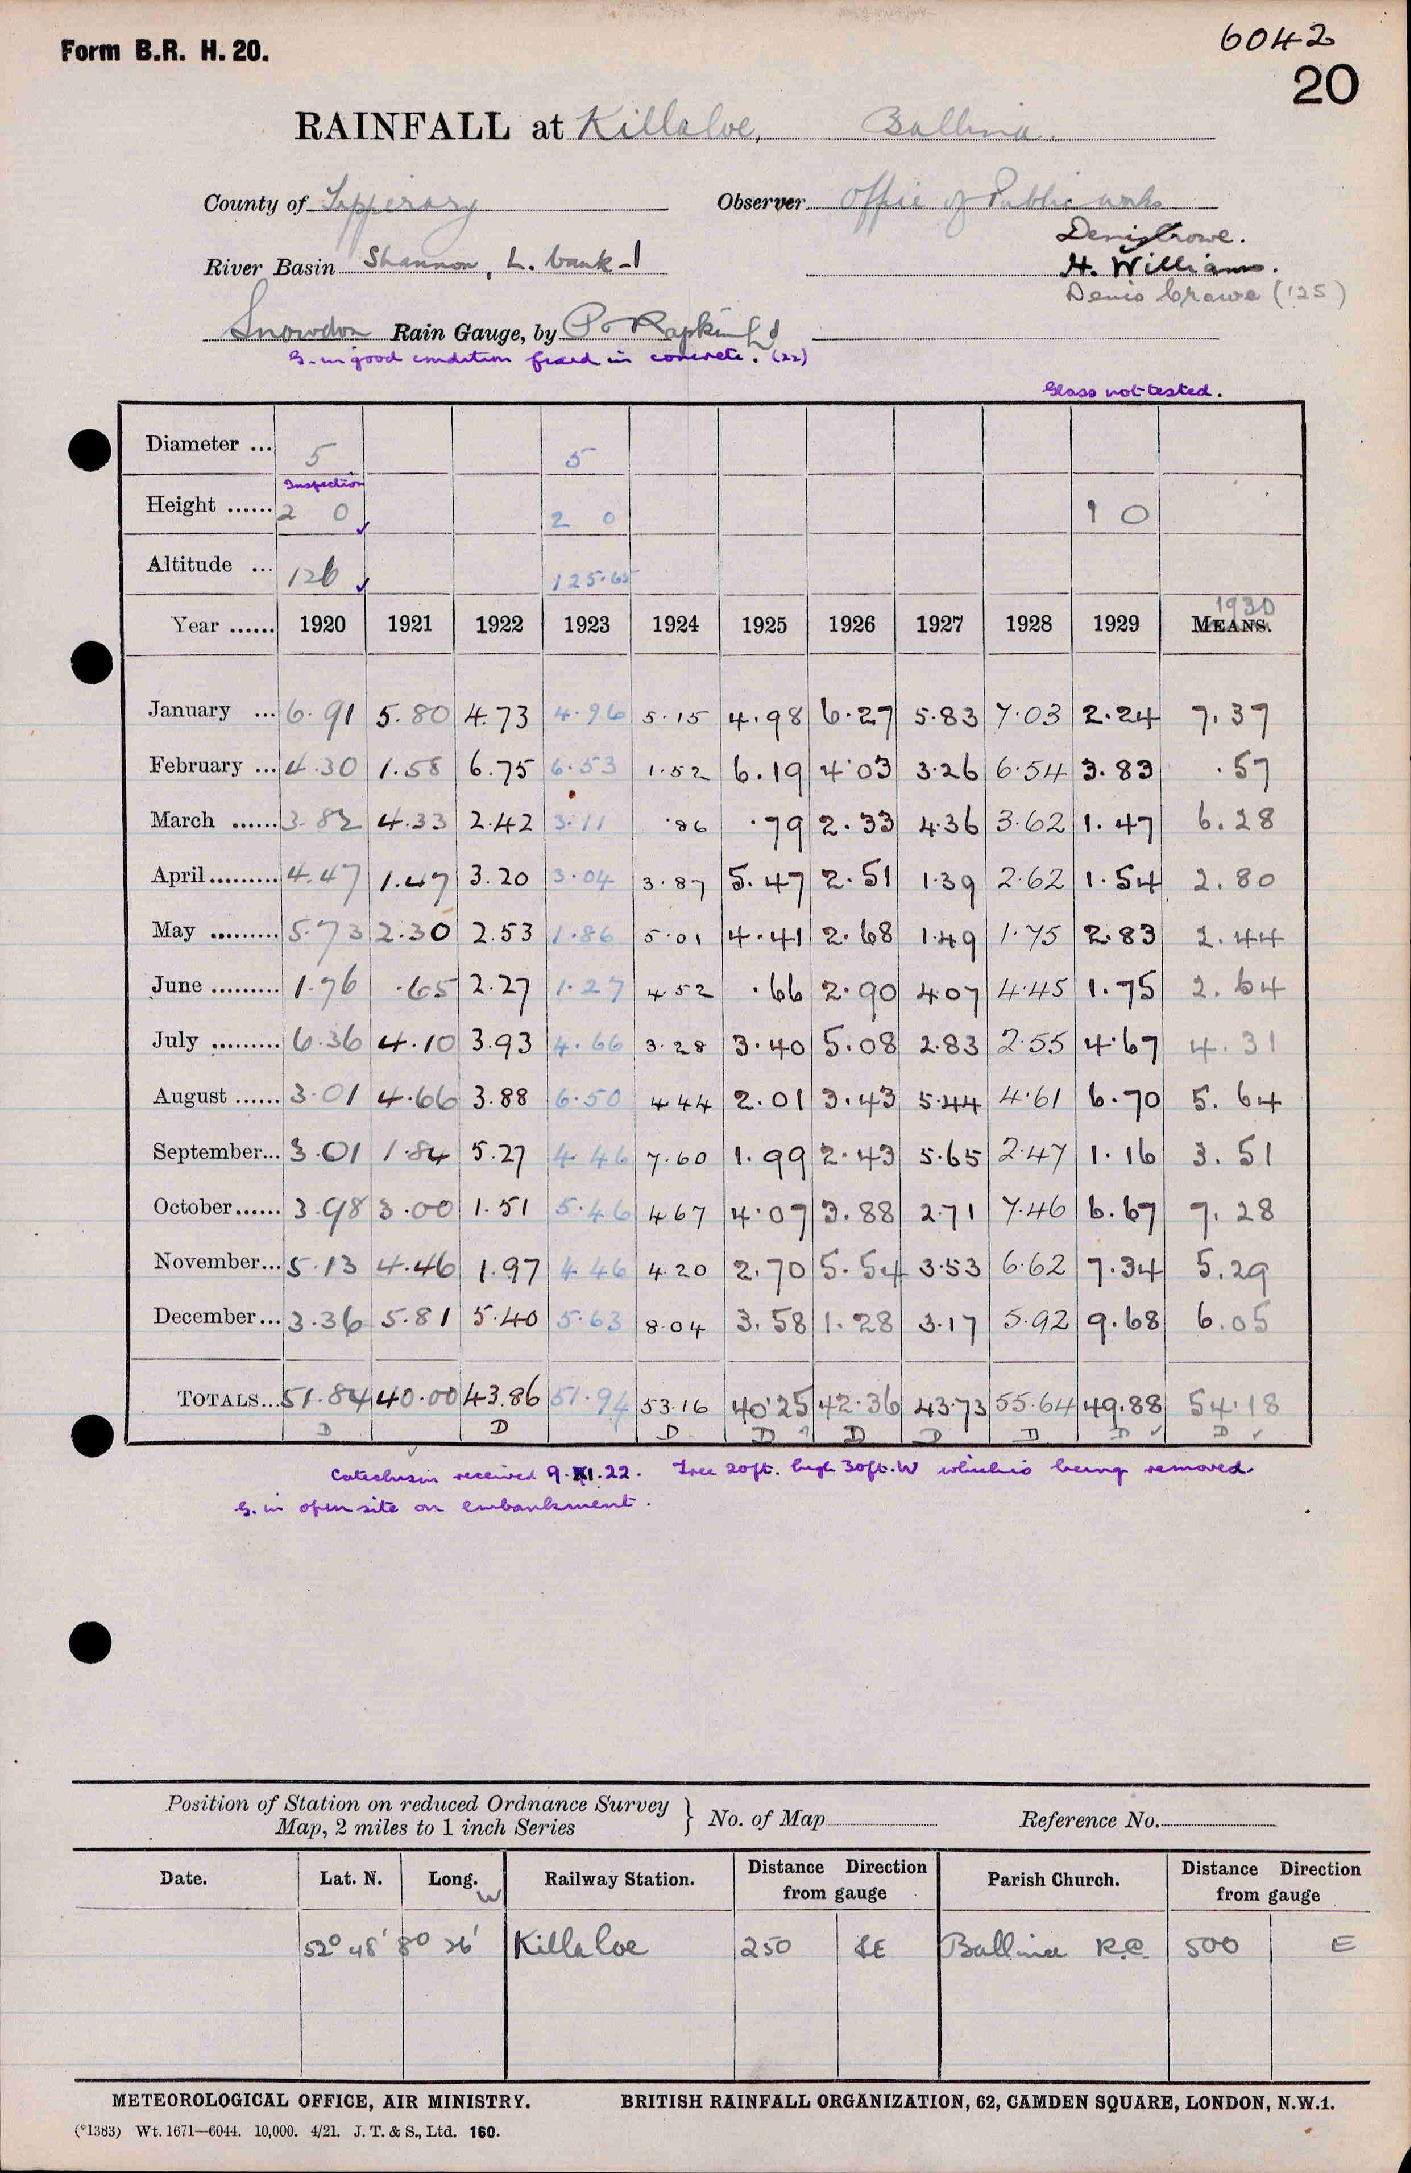 Form B.R. H. 20.
6042
20
RAINFALL at Killaloe, Ballina.
County of Tipperary Observer Office of Public works
Denis Crowe.
River Basin Shannon, L. bank - 1 H. Williams.
Denis Crowe (125)
Snowdon Rain Gauge, by
G. in good condition fixed in concrete. (22)
Glass not tested.
Diameter ... 5 5
Inspection
Height ...... 2 0 2 0 1 0
Altitude ... 126 125.65
Year ...... 1920 1921 1922 1923 1924 1925 1926 1927 1928 1929 1930 MEANS.
January ... 6.91 5.80 4.73 4.96 5.15 4.98 6.27 5.83 7.03 2.24 7.37
February ... 4.30 1.58 6.75 6.53 1.52 6.19 4.03 3.26 6.54 3.83 .57
March ...... 3.82 4.33 2.42 3.11 .86 .79 2.33 4.36 3.62 1.47 6.28
April......... 4.47 1.47 3.20 3.04 3.87 5.47 2.51 1.39 2.62 1.54 2.80
May ......... 5.73 2.30 2.53 1.86 5.01 4.41 2.68 1.49 1.75 2.83 2.44
June ......... 1.76 .65 2.27 1.27 4.52 .66 2.90 4.07 4.45 1.75 2.64
July ......... 6.36 4.10 3.93 4.66 3.28 3.40 5.08 2.83 2.55 4.67 4.31
August ...... 3.01 4.66 3.88 6.50 4.44 2.01 3.43 5.44 4.61 6.70 5.64
September... 3.01 1.84 5.27 4.46 7.60 1.99 2.43 5.65 2.47 1.16 3.51
October...... 3.98 3.00 1.51 5.46 4.67 4.07 3.88 2.71 7.46 6.67 7.28
November... 5.13 4.46 1.97 4.46 4.20 2.70 5.54 3.53 6.62 7.34 5.29
December... 3.36 5.81 5.40 5.63 8.04 3.58 1.28 3.17 5.92 9.68 6.05
TOTALS... 51.84 40.00 43.86 51.94 53.16 40.25 42.36 43.73 55.64 49.88 54.18
D D D D D D D D D
Catechism received 9.XI.22. Tree 20ft. high 30ft. W which is being removed.
G. in open site on embankment.
Position of Station on reduced Ordnance Survey
Map, 2 miles to 1 inch Series } No. of Map Reference No.
Date. Lat. N. Long. W Railway Station. Distance Direction from gauge Parish Church. Distance Direction from gauge
52° 48' 8° 26' Killaloe 250 SE Ballina R.C. 500 E
METEOROLOGICAL OFFICE, AIR MINISTRY. BRITISH RAINFALL ORGANIZATION, 62, CAMDEN SQUARE, LONDON, N.W.1.
(*1383) Wt. 1671—6044. 10,000. 4/21. J. T. & S., Ltd. 160.